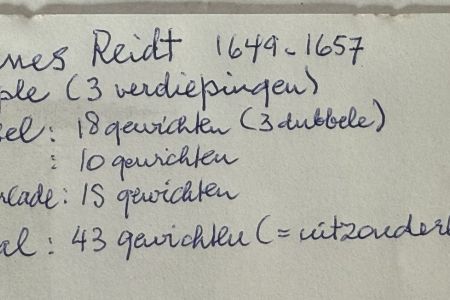 nes Reidt 1649-1657
ple (3 verdiepingen)
el: 18 gewichten (3 dubbele)
: 10 gewichten
lade: 15 gewichten
al: 43 gewichten (= uitzonderl